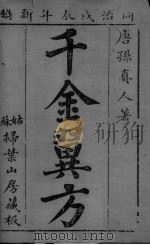 同治戊辰年新
唐孫真人著
千金翼方
姑蘇掃葉山房藏板